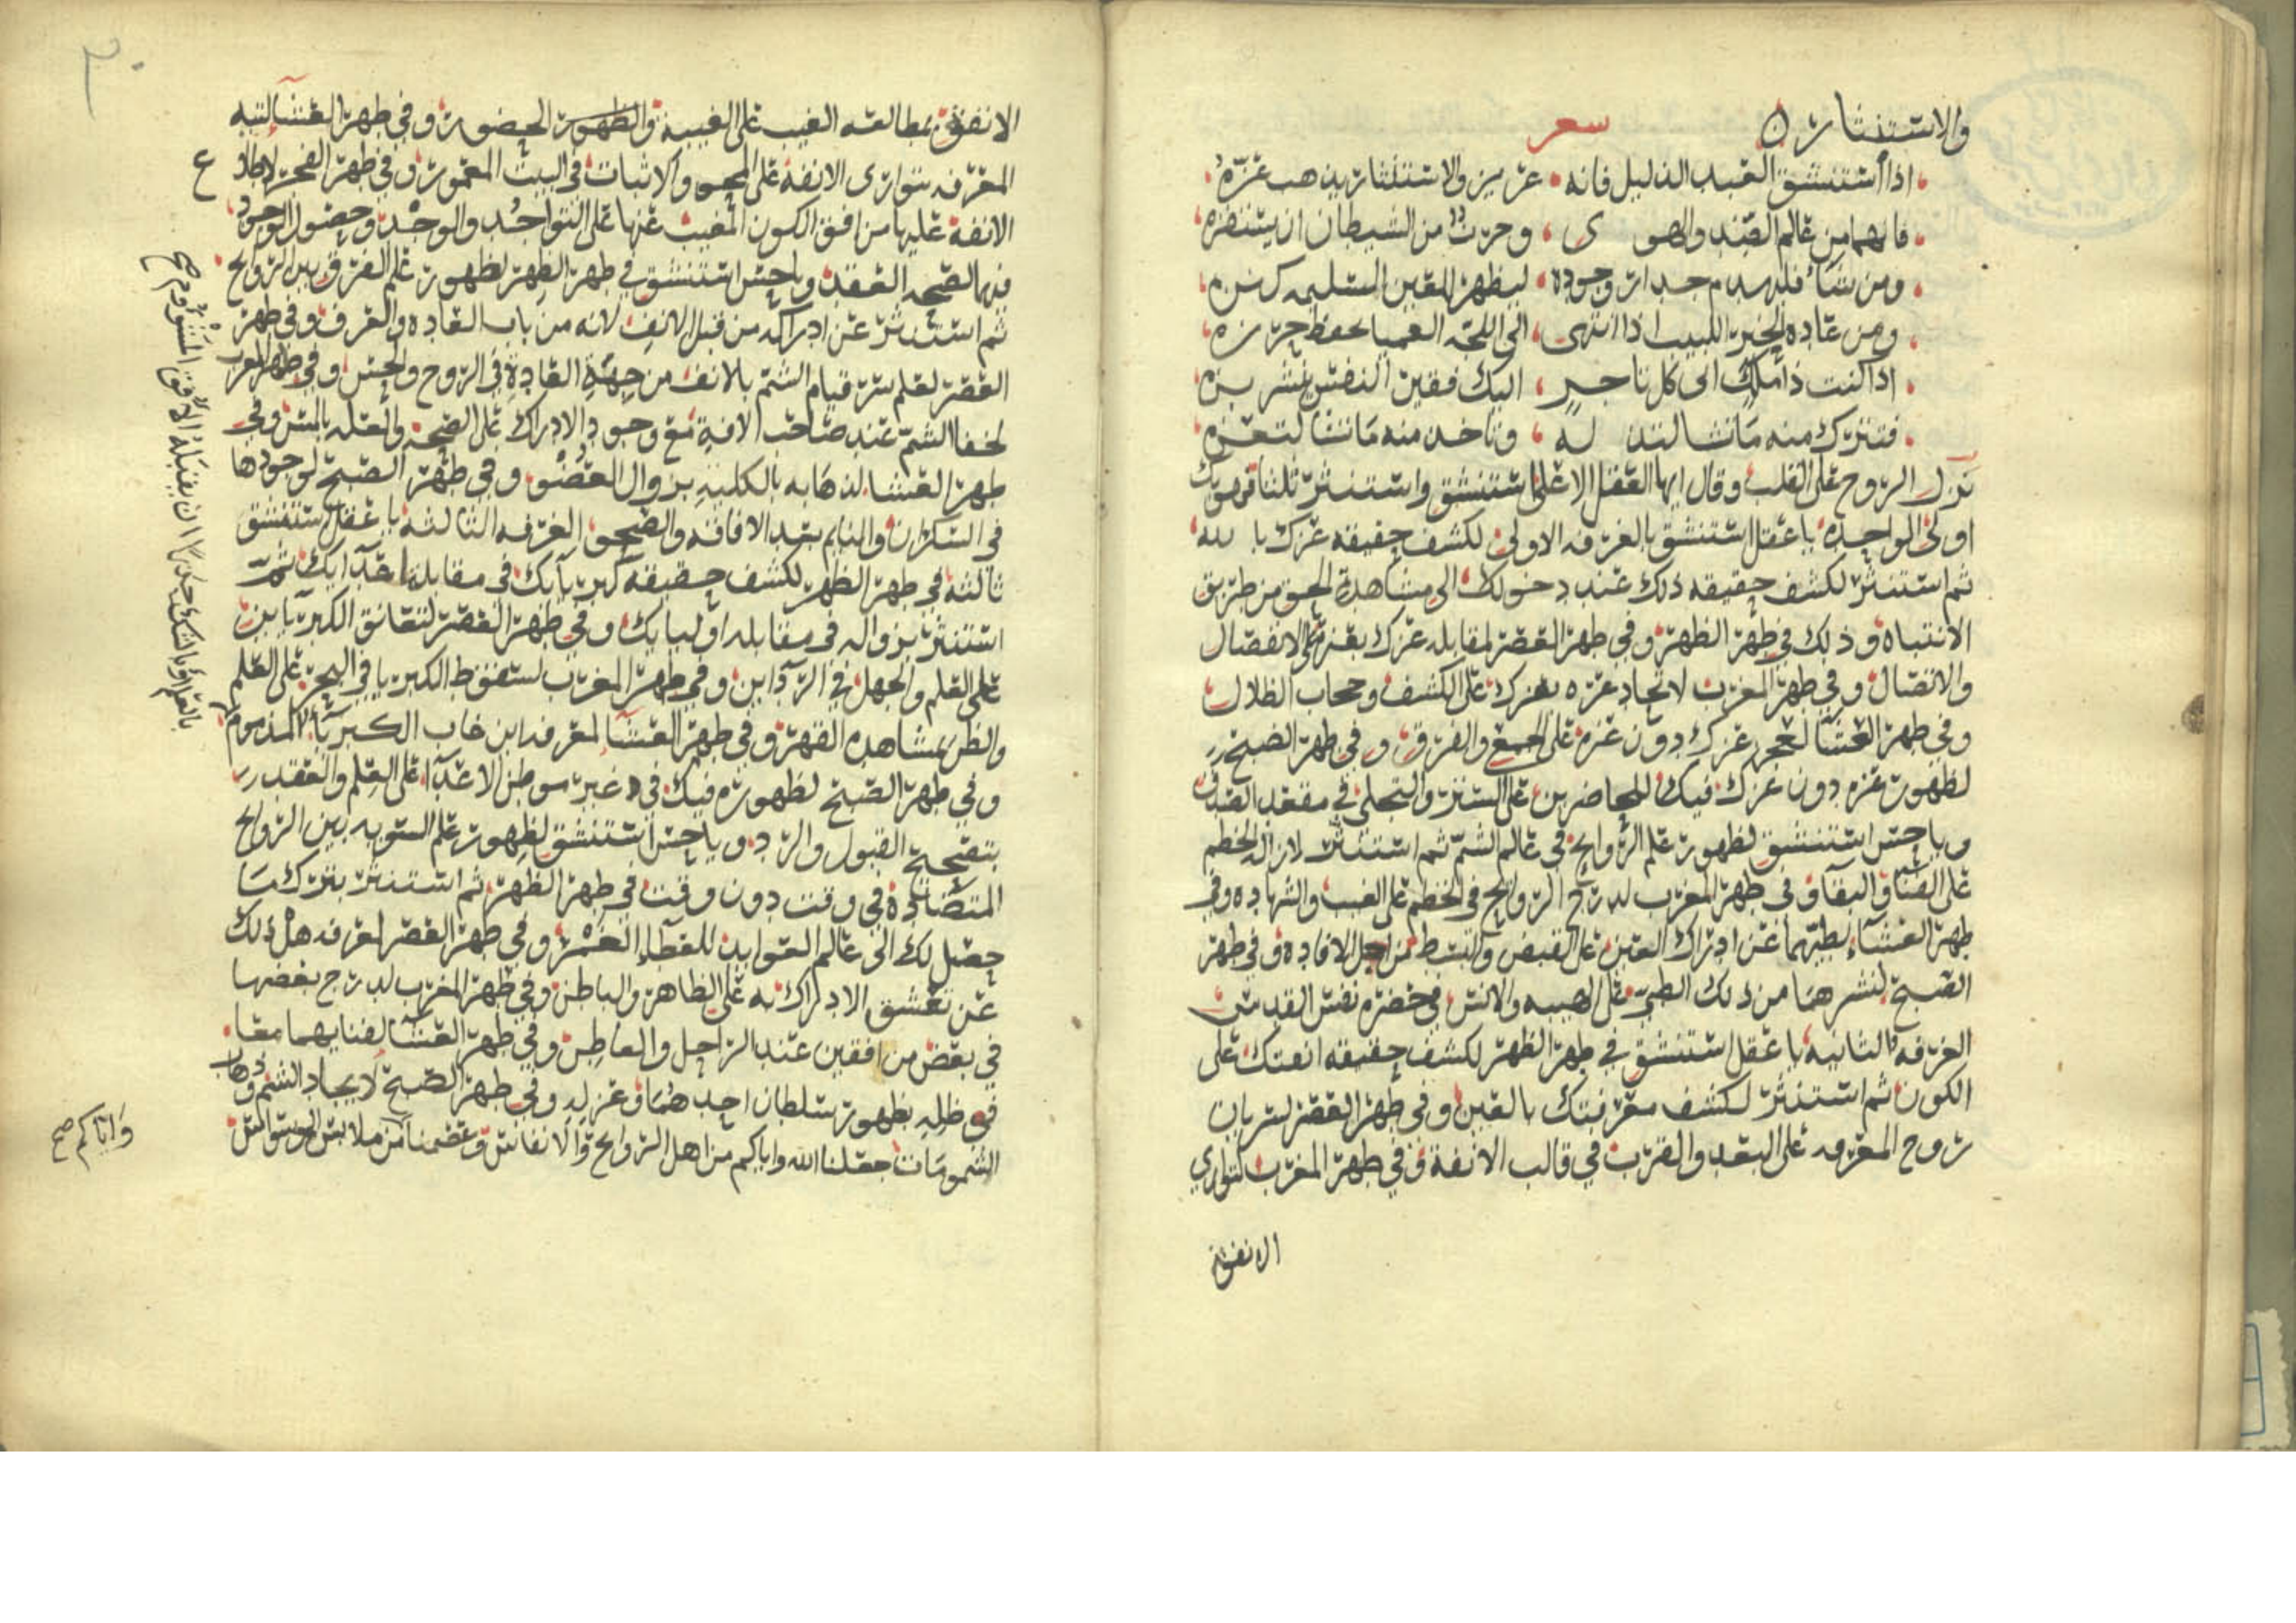 والاستنثار ن شعر
اذا استنشق العبد الذليل فانه عزيز والاستنثار يذهب عزه
فانهما من عالم الضد والهوى وحرث من الشيطان ان يستفزه
ومن شاء فليهدم جدار وجوده ليظهر للعين السليمه كنزه
ومن عاده الخبر اللبيب اذا انتهى الى اللجه العميا يحفظ حرزه
اذا كنت ذا ملك اتى كل تاجر اليك فقير النفس ينشر بزه
فتترك منه ما تشا لتذله وتاخذ منه ما تشا لتعزه
نزل الروح على القلب وقال ايها العقل الاعلى استنشق واستنثر ثلثا فهو بك
اولى الواحده يا عقل استنشق بالغرفه الاولى لكشف حقيقه عزك بالله
ثم استنثر لكشف حقيقه ذلك عند دخولك الى مشاهدة الحق من طريق
الانتباه وذلك في طهر الظهر وفي طهر العصر لمقابله عزك بعزه على الانفصال
والاتصال وفي طهر المغرب لاتحاد عزه بعزك على الكشف وحجاب الظلال
وفي طهر العشا لحجر عزك دون عزه على الجمع والفرق وفي طهر الصبح
لظهور عزه دون عزك فيك للحاضرين على الستر والتجلى في مقعد الصدق
ويا حس استنشق لظهور علم الروايح في عالم الشم ثم استنثر لازاله الخطم
على الفنا والبقا وفي طهر المغرب لدرج الروايح في الخطم على الغيب والشهاده وفي
طهر العشاء لطيهما عن ادراك العين على القبض والبسط من اجل الافاده وفي طهر
الصبح لنشرهما من ذلك الطي على الهيبه والانس في حضره نفس القدس
الغرفه الثانيه يا عقل استنشق في طهر الظهر لكشف حقيقه انفتك على
الكون ثم استنثر لكشف معرفتك بالعين وفي طهر العصر لسريان
روح المعرفه على البعد والقرب في قالب الانفة وفي طهر المغرب لتوارى
الانفة
الانفة بمطالعه الغيب على الغيبة والظهور الحضور وفي طهر العشا لتيه
المعرفه بتوارى الانفة على المحو والاثبات في البيت المعمور وفي طهر الفجر لاطلاع
الانفة عليها من افق الكون المغيب عنها على التواجد والوجد وحصول الوجود
فيها لصحه العقد ويا حس استنشق في طهر الظهر لظهور علم الفرق بين الروايح
ثم استنثر عن ادراكه من قبل الانف لانه من باب العاده والعرف وفي طهر
العصر لعلم سر قيام الشم بالانف من جهة العادة في الروح والحس وفي طهر المغرب
لخفا الشم عند صاحب الافة مع وجود الادراك على الصحه والعله بالمس وفي
طهر العشا لذهابه بالكلية بزوال العضو وفي طهر الصبح لوجودها
في السكران والنايم بعد الافاقه والصحو الغرفه الثالثه يا عقل استنشق
ثالثه في طهر الظهر لكشف حقيقه كبريآيك في مقابلة اعدايك ثم
استنثر بزواله في مقابله اوليايك وفي طهر العصر لتعانق الكبريايين
على العلم والجهل في الردآين وفي طهر المغرب لسقوط الكبريا في البحر على العلم
والظن بمشاهده القهر وفي طهر العشا لمعرفه اين غاب الكبريآ المذموم
وفي طهر الصبح لظهوره فيك في غير موطن الاعدآ على العلم والعقد
بتصحيح القبول والرد ويا حس استنشق لظهور علم التسويه بين الروايح
المتضادة في وقت دون وقت في طهر الظهر ثم استنثر بترك ما
حصل لك الى عالم العوايد للعطاء الغمر وفي طهر العصر لمعرفه هل ذلك
عن تعشق الادراك به على الظاهر والباطن وفي طهر المغرب لدرج بعضها
في بعض من افقين عند الراجل والعاطس وفي طهر العشا لفنايهما معا
في ظله بظهور سلطان احدهما وعزله وفي طهر الصبح لايجاد الشم وذهاب
الشمومات جعلنا الله واياكم من اهل الروايح والانفاس وعصمنا من ملابس
واياكم صح